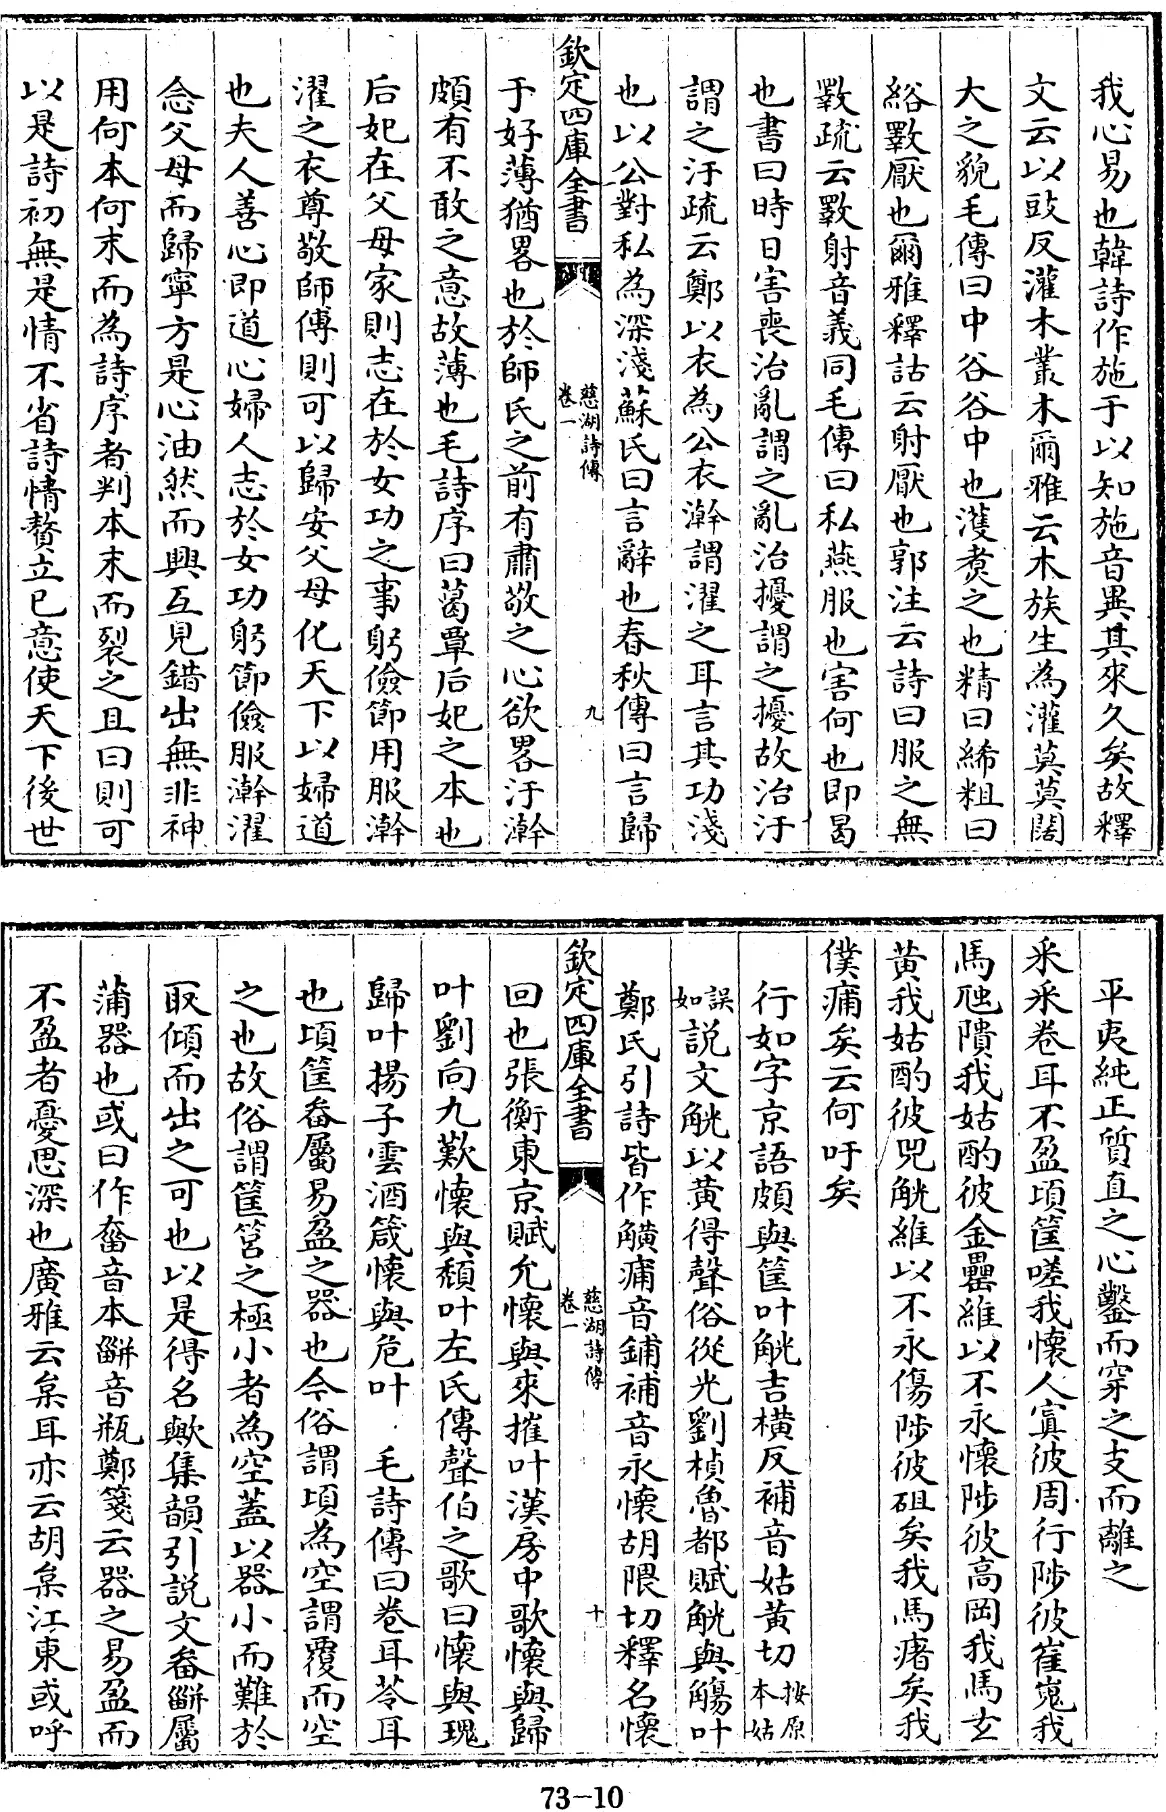 我心易也韓詩作施于以知施音異其來久矣故釋
文云以豉反灌木叢木爾雅云木族生為灌莫莫闊
大之貌毛傳曰中谷谷中也濩煑之也精曰絺粗曰
綌斁厭也爾雅釋詁云射厭也郭注云詩曰服之無
斁疏云斁射音義同毛傳曰私燕服也害何也即曷
也書曰時日害喪治亂謂之亂治擾謂之擾故治汙
謂之汙疏云鄭以衣為公衣澣謂濯之耳言其功淺
也以公對私為深淺蘇氏曰言辭也春秋傳曰言歸
欽定四庫全書
慈湖詩傳
卷一
九
于好薄猶畧也於師氏之前有肅敬之心欲畧汙澣
頗有不敢之意故薄也毛詩序曰葛覃后妃之本也
后妃在父母家則志在於女功之事躬儉節用服澣
濯之衣尊敬師傅則可以歸安父母化天下以婦道
也夫人善心即道心婦人志於女功躬節儉服澣濯
念父母而歸寧方是心油然而興互見錯出無非神
用何本何末而為詩序者判本末而裂之且曰則可
以是詩初無是情不省詩情贅立已意使天下後世
平夷純正質直之心鑿而穿之支而離之
采采卷耳不盈頃筐嗟我懷人寘彼周行陟彼崔嵬我
馬虺隤我姑酌彼金罍維以不永懷陟彼高岡我馬玄
黄我姑酌彼兕觥維以不永傷陟彼砠矣我馬瘏矣我
僕痡矣云何吁矣
行如字京語頗與筐叶觥吉橫反補音姑黄切按原本姑
誤如說文觥以黄得聲俗從光劉楨魯都賦觥與觴叶
鄭氏引詩皆作觵痡音鋪補音永懷胡隈切釋名懷
欽定四庫全書
慈湖詩傳
卷一
十
回也張衡東京賦允懷與來摧叶漢房中歌懷與歸
叶劉向九歎懷與頽叶左氏傳聲伯之歌曰懷與瑰
歸叶揚子雲酒箴懷與危叶 毛詩傳曰卷耳苓耳
也頃筐畚屬易盈之器也今俗謂頃為空謂覆而空
之也故俗謂筐筥之極小者為空蓋以器小而難於
取傾而出之可也以是得名歟集韻引說文畚𤰆屬
蒲器也或曰作畚音本𤰆音瓶鄭箋云器之易盈而
不盈者憂思深也廣雅云枲耳亦云胡枲江東或呼
73-10